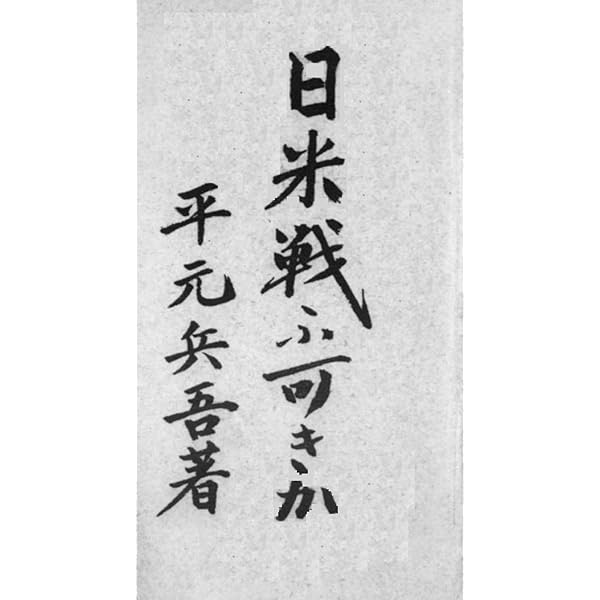 日米戦ふ可きか
平元兵吾著